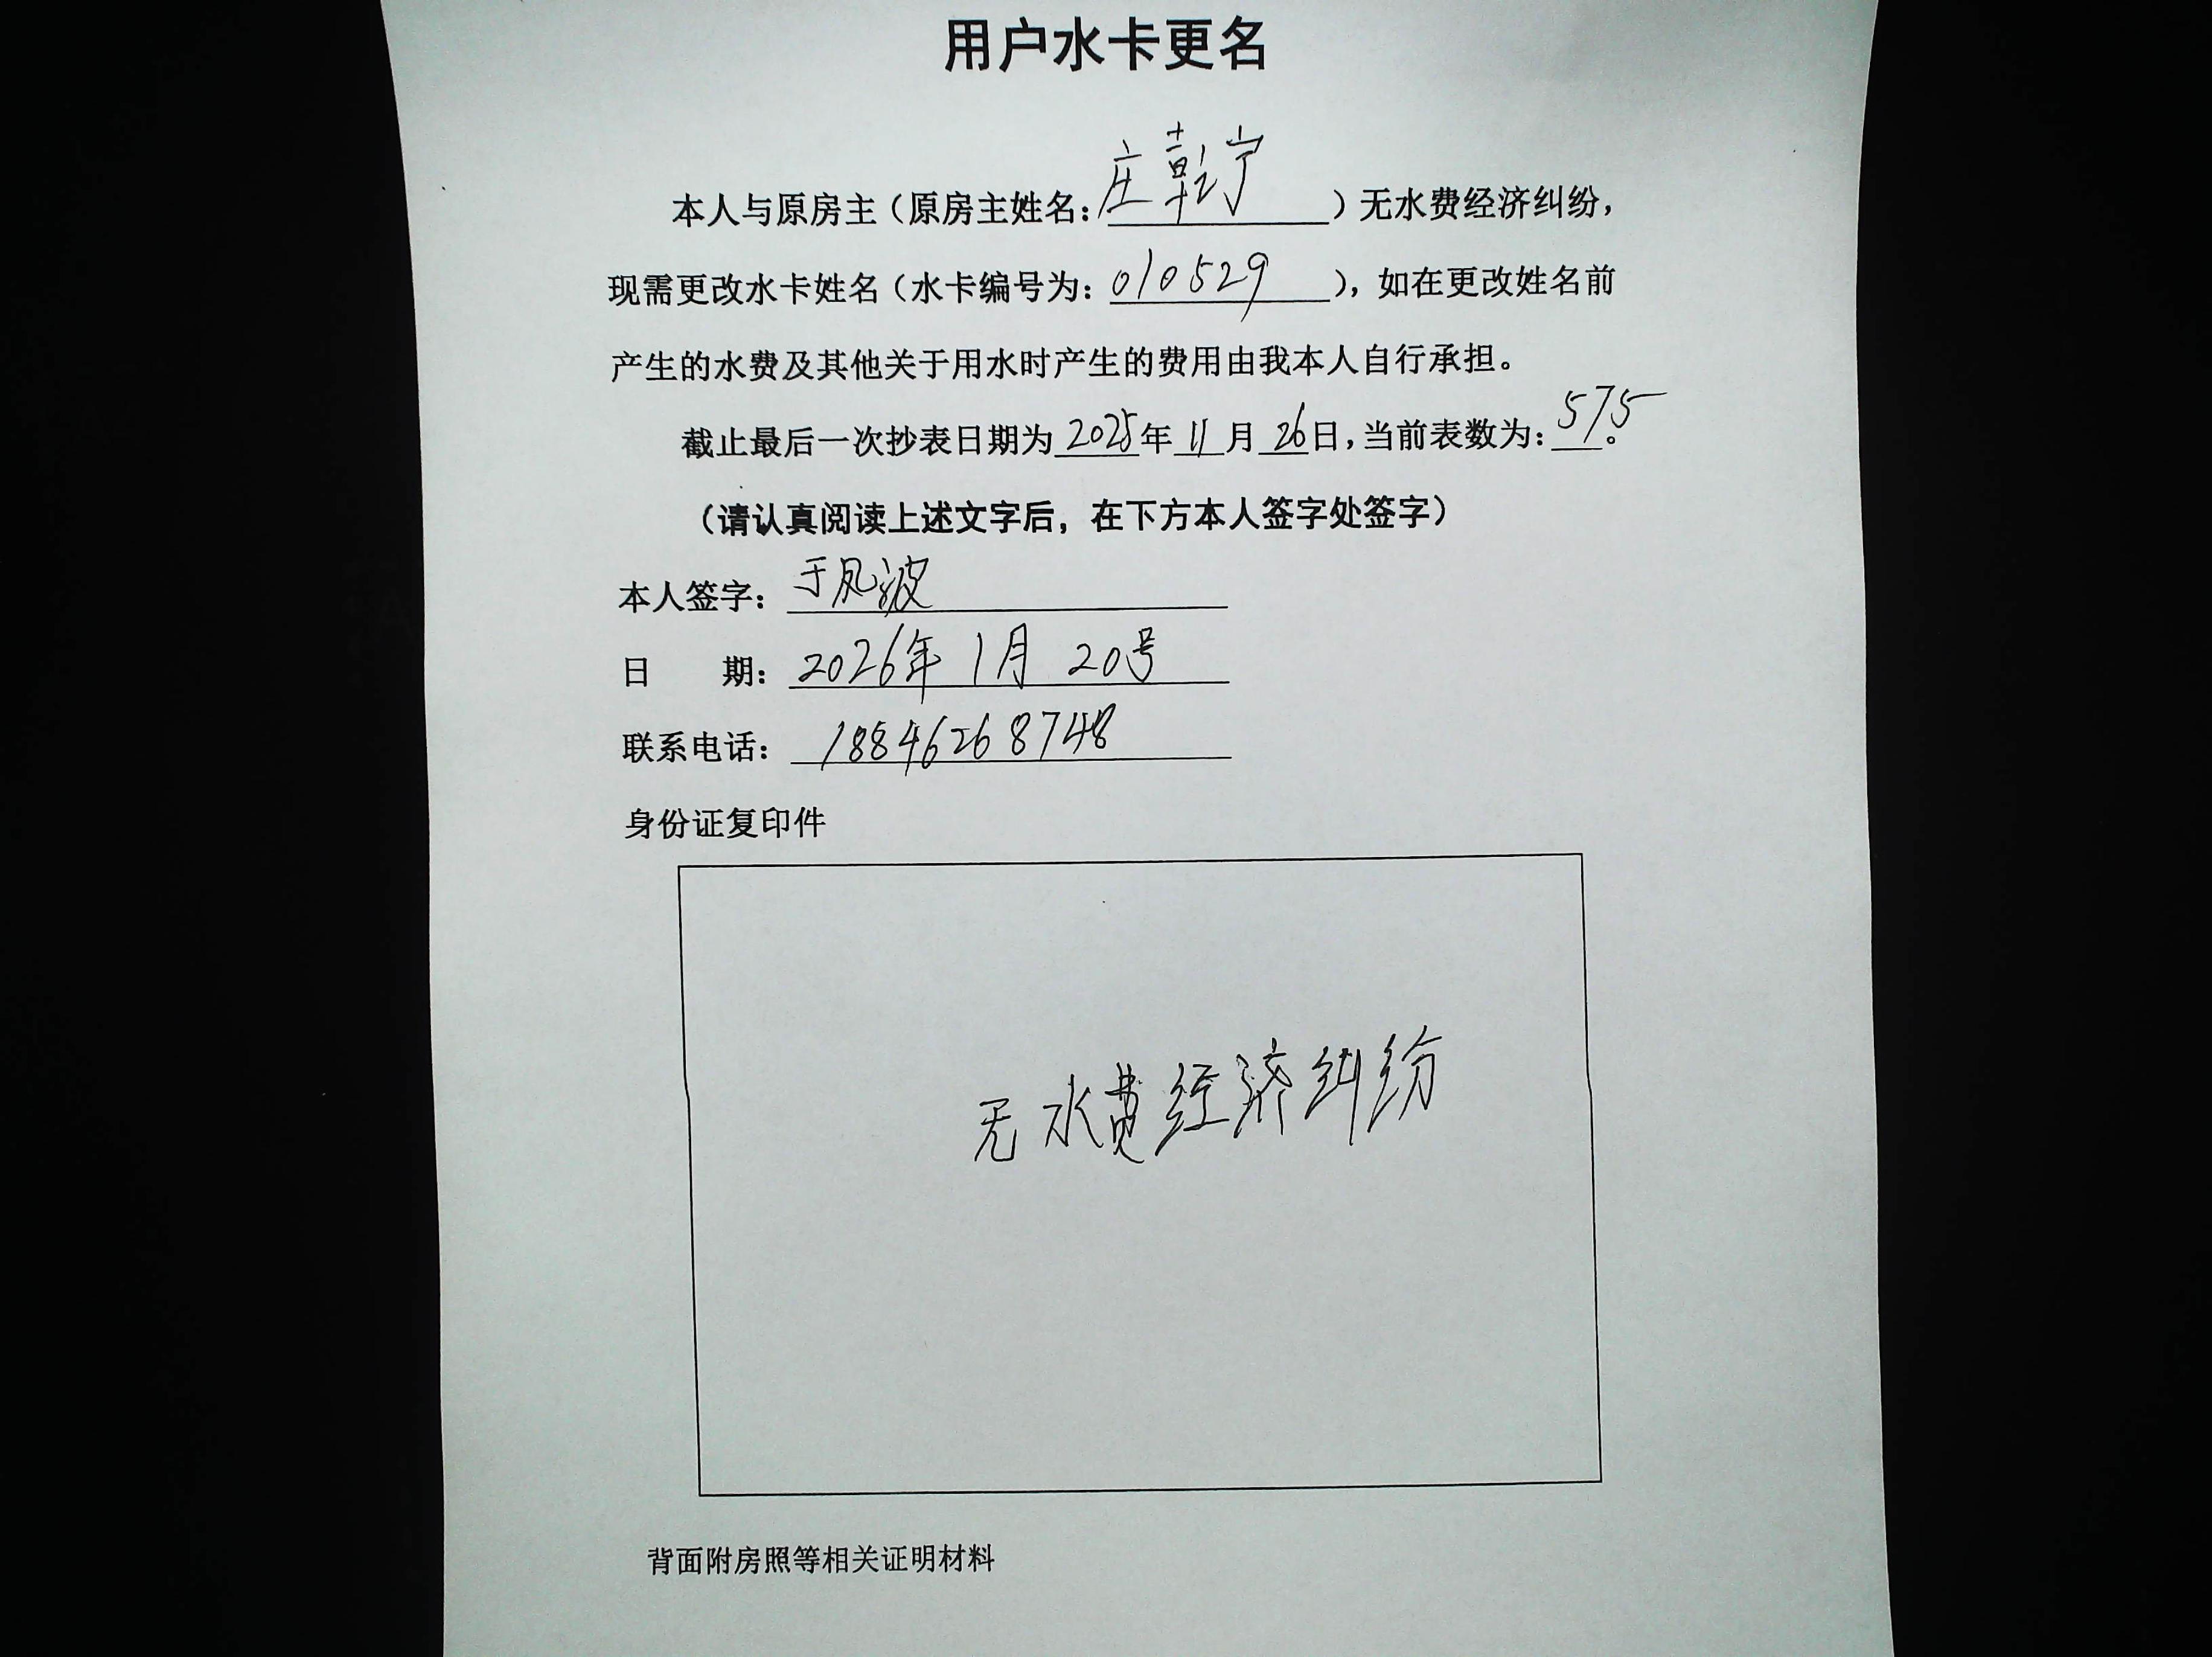 用户水卡更名
本人与原房主（原房主姓名：庄乾宁）无水费经济纠纷，
现需更改水卡姓名（水卡编号为：010529），如在更改姓名前
产生的水费及其他关于用水时产生的费用由我本人自行承担。
截止最后一次抄表日期为2025年11月26日，当前表数为：575。
（请认真阅读上述文字后，在下方本人签字处签字）
本人签字：于凤波
日 期：2026年1月20号
联系电话：18846268748
身份证复印件
无水费经济纠纷
背面附房照等相关证明材料